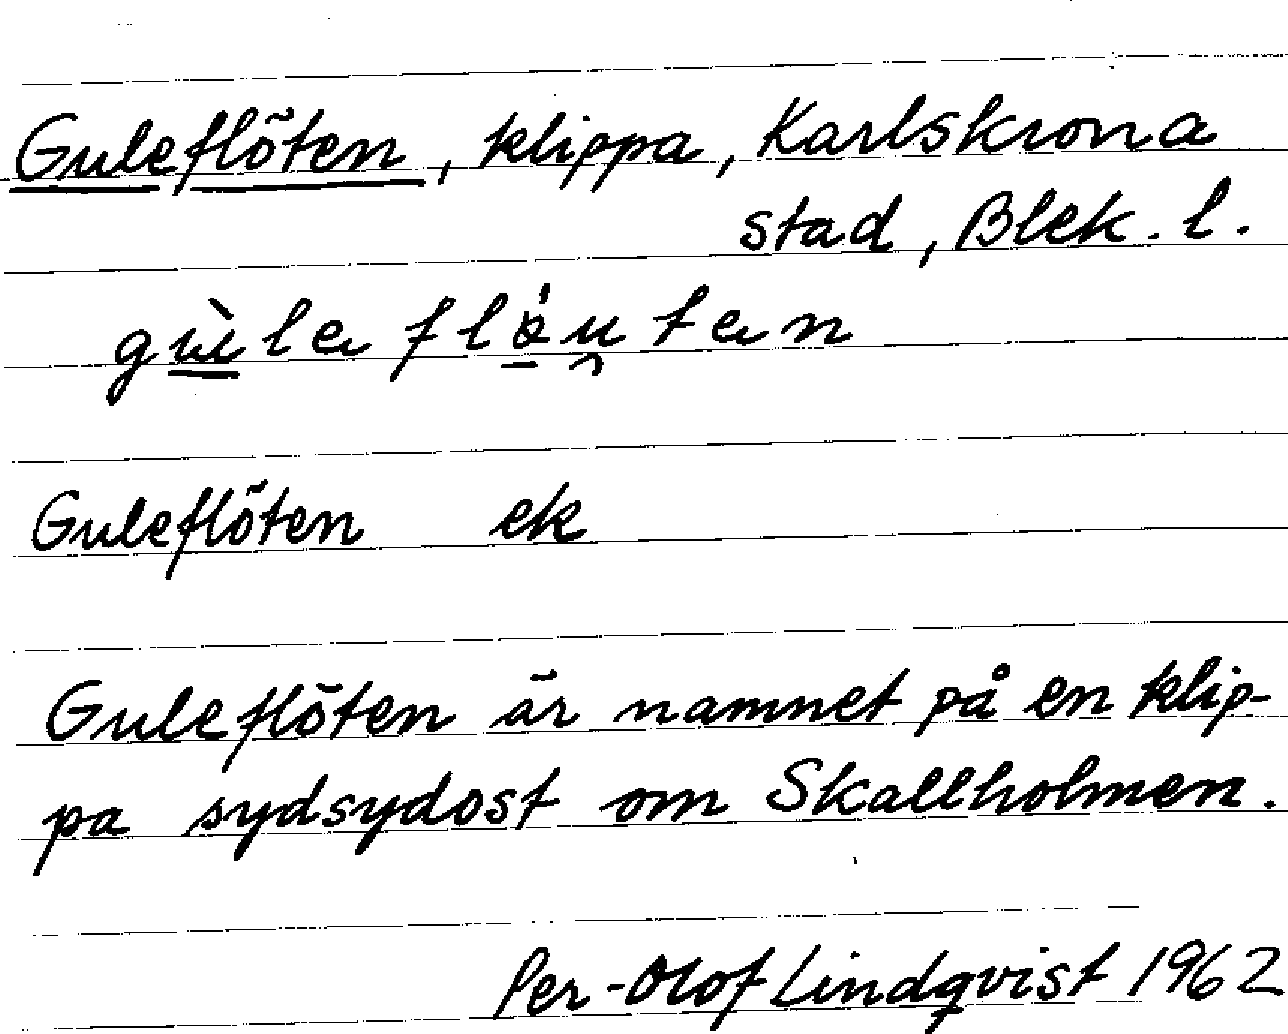 Guleflöten, klippa, Karlskrona
stad, Blek. l.
Guleflöten ek
Guleflöten är namnet på en klip-
pa sydsydost om Skallholmen.
Per-Olof Lindqvist 1962